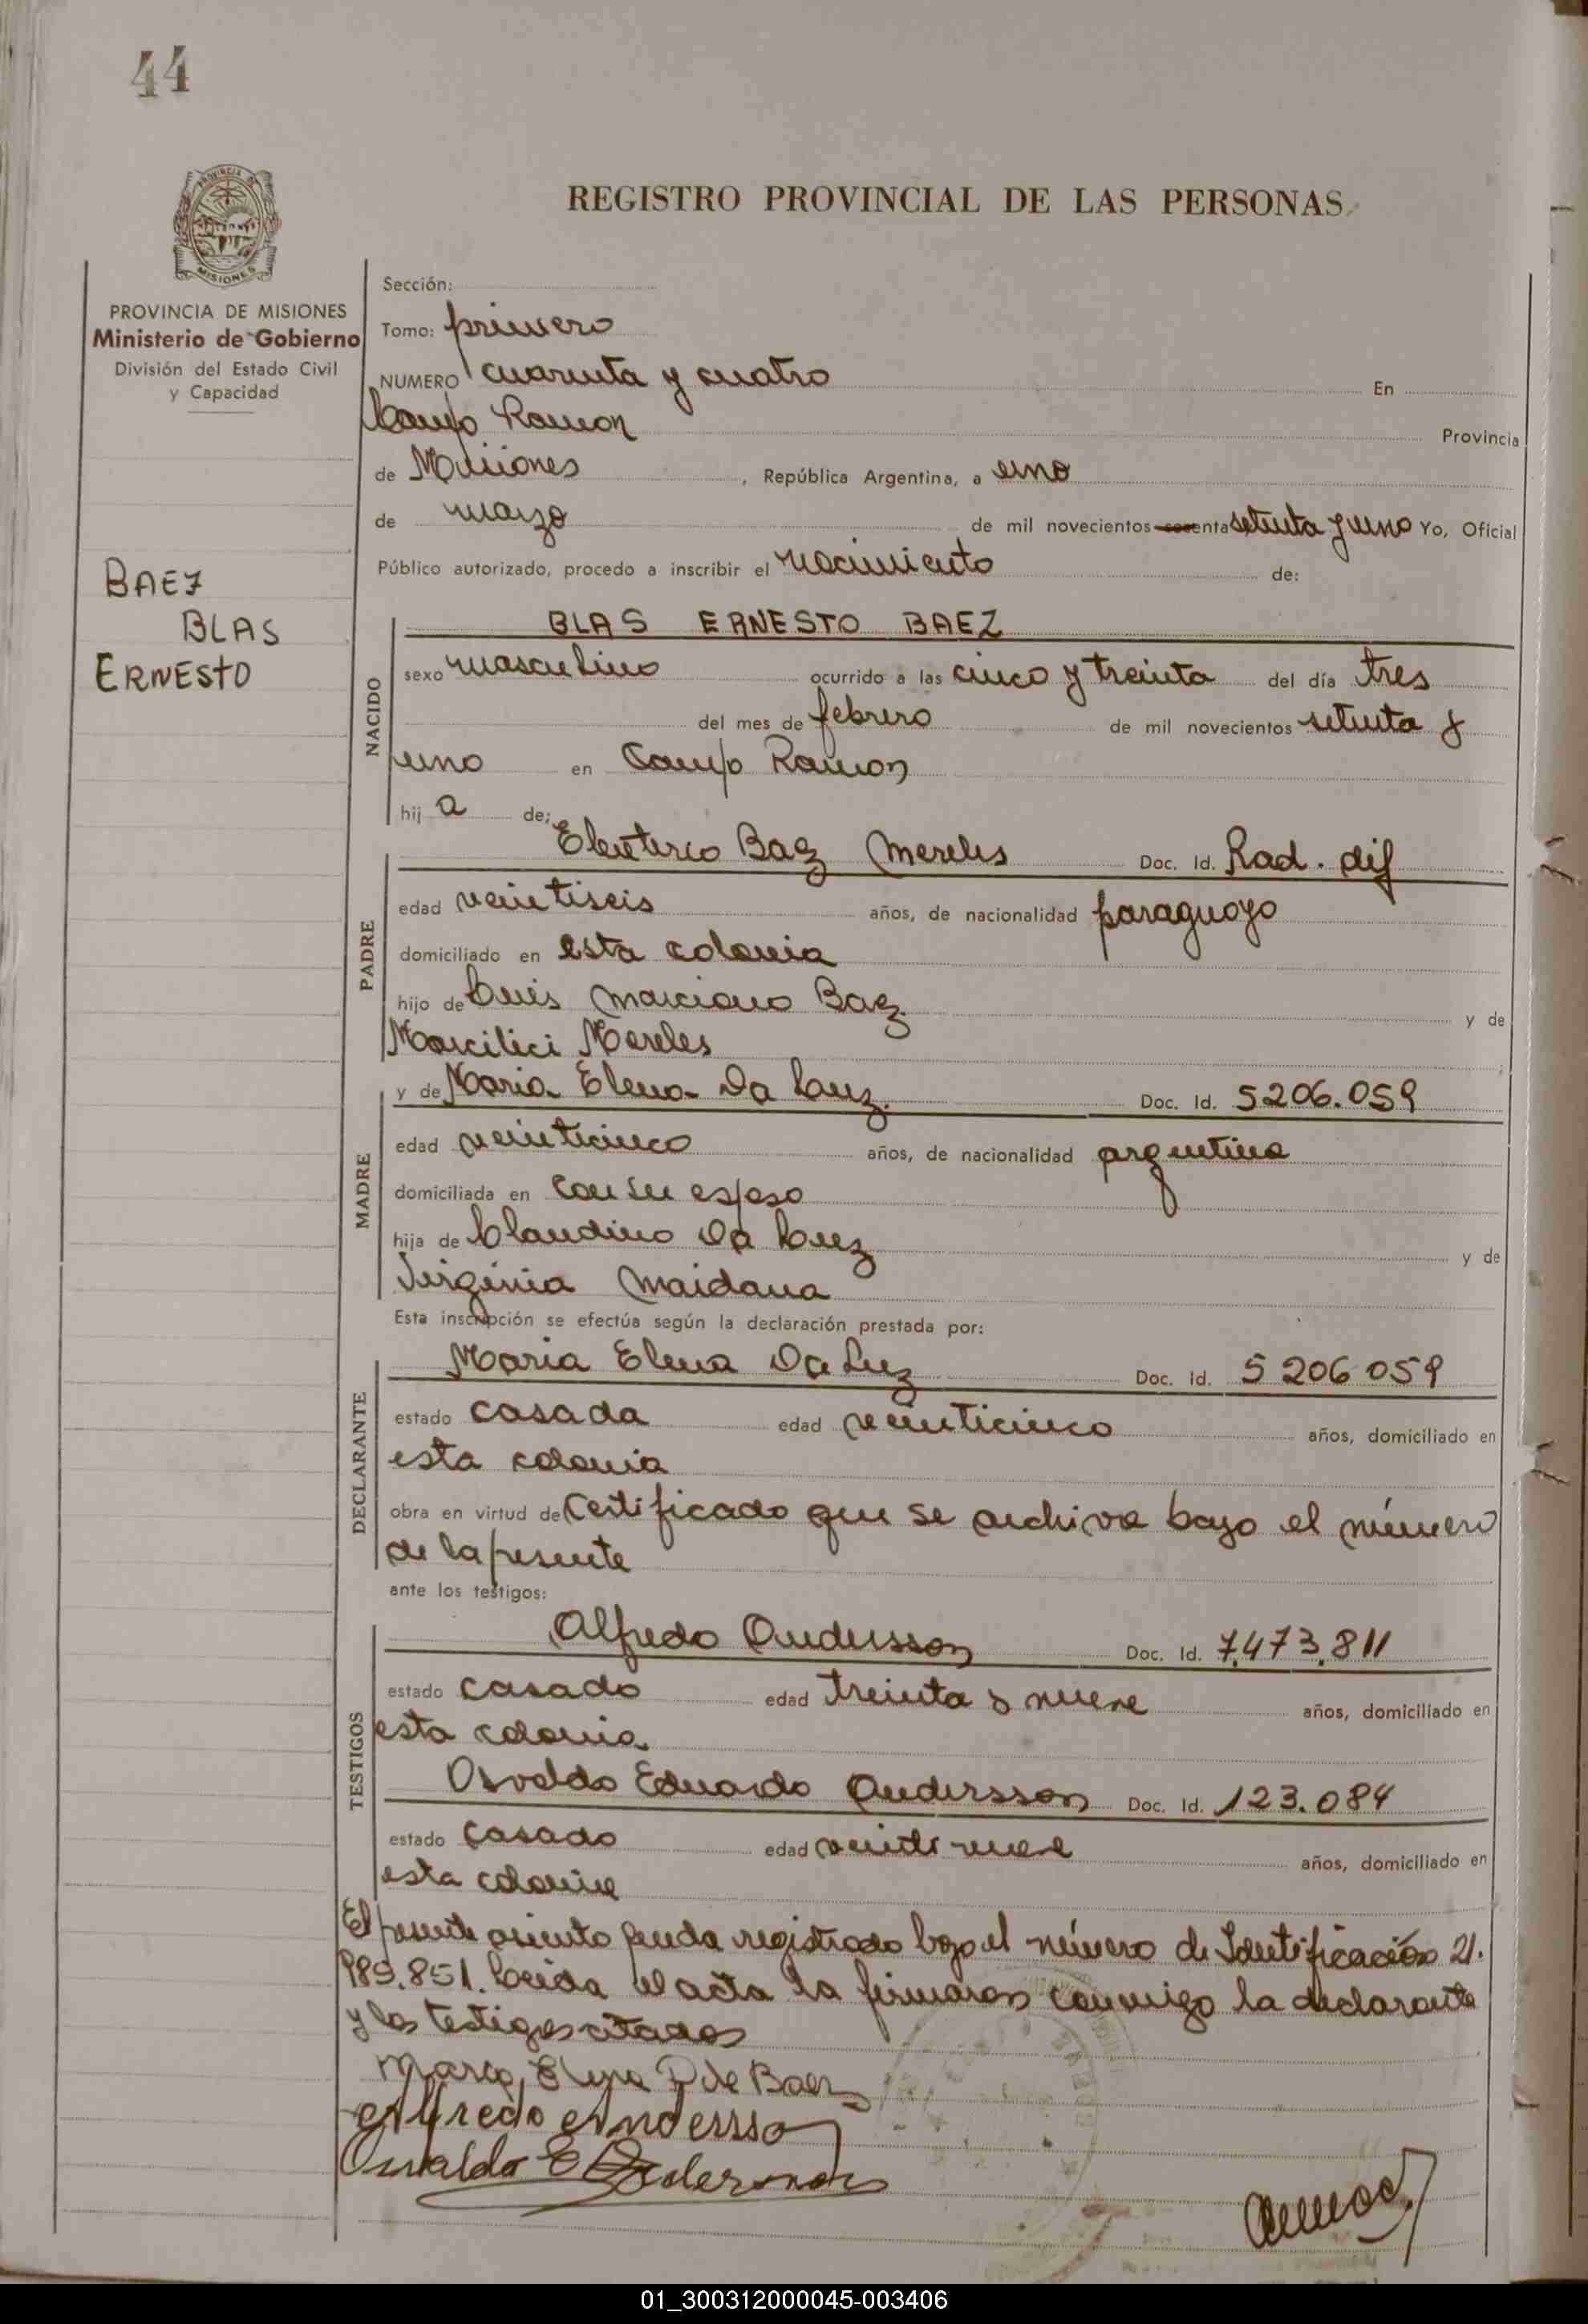 44
PROVINCIA DE MISIONES
MISIONES
REGISTRO PROVINCIAL DE LAS PERSONAS
PROVINCIA DE MISIONES
Ministerio de Gobierno
División del Estado Civil
y Capacidad
BAEZ
BLAS
ERNESTO
Sección:
Tomo: primero
NUMERO cuarenta y cuatro En
Campo Ramon Provincia
de Misiones, República Argentina, a uno
de marzo de mil novecientos sesenta setenta y uno Yo, Oficial
Público autorizado, procedo a inscribir el nacimiento de:
NACIDO
BLAS ERNESTO BAEZ
sexo masculino ocurrido a las cinco y treinta del día tres
del mes de febrero de mil novecientos setenta y
uno en Campo Ramon
hij a de:
PADRE
Eleuterio Baez Mereles Doc. Id. Rad. dif
edad veintiseis años, de nacionalidad paraguayo
domiciliado en esta colonia
hijo de Luis Marciano Baez y de
Mereles
MADRE
y de Maria Elena Da Luz. Doc. Id. 5206.059
edad veinticinco años, de nacionalidad argentina
domiciliada en con su esposo
hija de Claudino Da Luz y de
Virginia Maidana
Esta inscripción se efectúa según la declaración prestada por:
DECLARANTE
Maria Elena Da Luz Doc. Id. 5 206 059
estado casada edad veinticinco años, domiciliado en
esta colonia
obra en virtud de Certificado que se archiva bajo el número
de la presente
ante los testigos:
TESTIGOS
Alfredo Andersson Doc. Id. 7.473.811
estado casado edad treinta y nueve años, domiciliado en
esta colonia
Osvaldo Eduardo Andersson Doc. Id. 123.084
estado casado edad veintinueve años, domiciliado en
esta colonia
El presente asiento queda registrado bajo el número de Identificación 21.
989.851. Leida el acta la firmaron conmigo la declarante
y los testigos citados
Maria Elena D de Baez
alfredo andersson
Osvaldo E Anderson
01_300312000045-003406